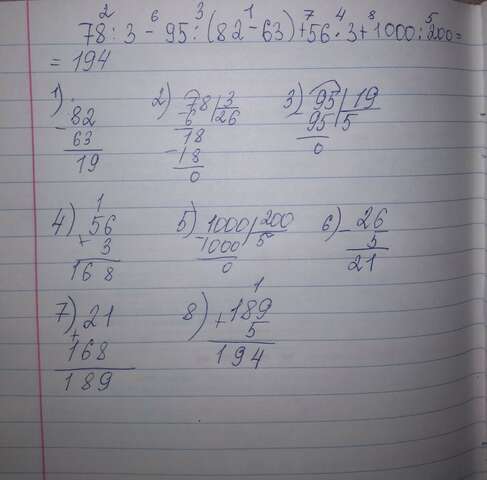 2 6 3 1 7 4 8 5
78 : 3 - 95 : (82 - 63) + 56 · 3 + 1000 : 200 =
= 194
1) 2) 3)
82 78 | 3 95 | 19
- 63 6 | 26 - 95 | 5
19 18 0
- 18
0
1
4) 56 5) 1000 | 200 6) - 26
+ 3 - 1000 | 5 5
168 0 21
1
7) 21 8) + 189
+ 168 5
189 194